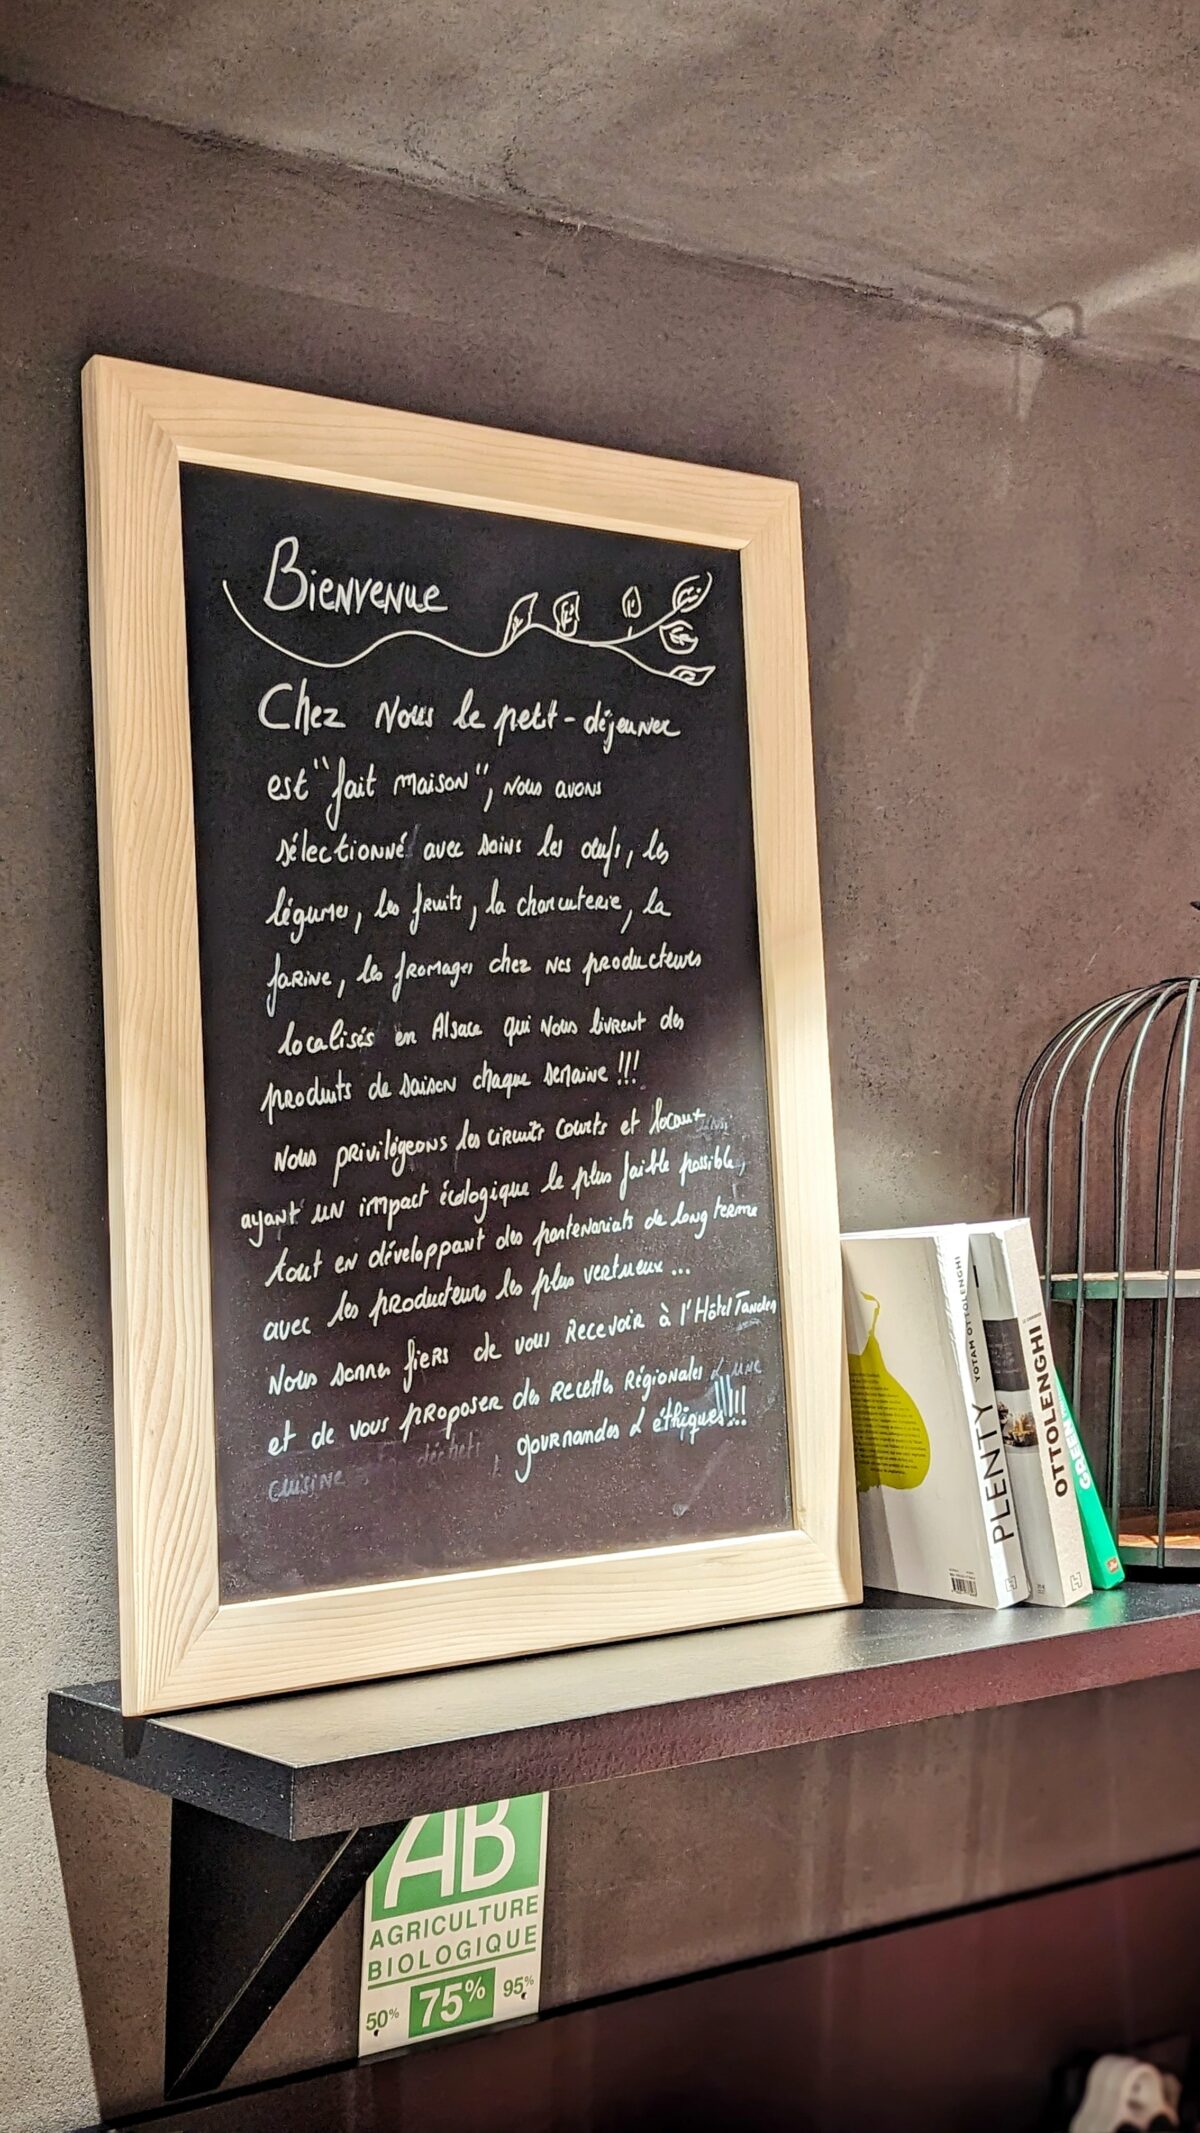 Bienvenue
Chez Nous le petit-déjeuner
est "fait maison", nous avons
sélectionné avec soins les œufs, les
légumes, les fruits, la charcuterie, la
farine, les fromages chez nos producteurs
localisés en Alsace qui nous livrent des
produits de saison chaque semaine !!!
Nous privilégeons les circuits courts et locaux
ayant un impact écologique le plus faible possible,
tout en développant des partenariats de long terme
avec les producteurs les plus vertueux...
Nous sommes fiers de vous recevoir à l'Hôtel Tandem
et de vous proposer des recettes régionales
gourmandes & éthiques!!!!
cuisine déchets
PLENTY YOTAM OTTOLENGHI
OTTOLENGHI
AB
AGRICULTURE
BIOLOGIQUE
50% 75% 95%